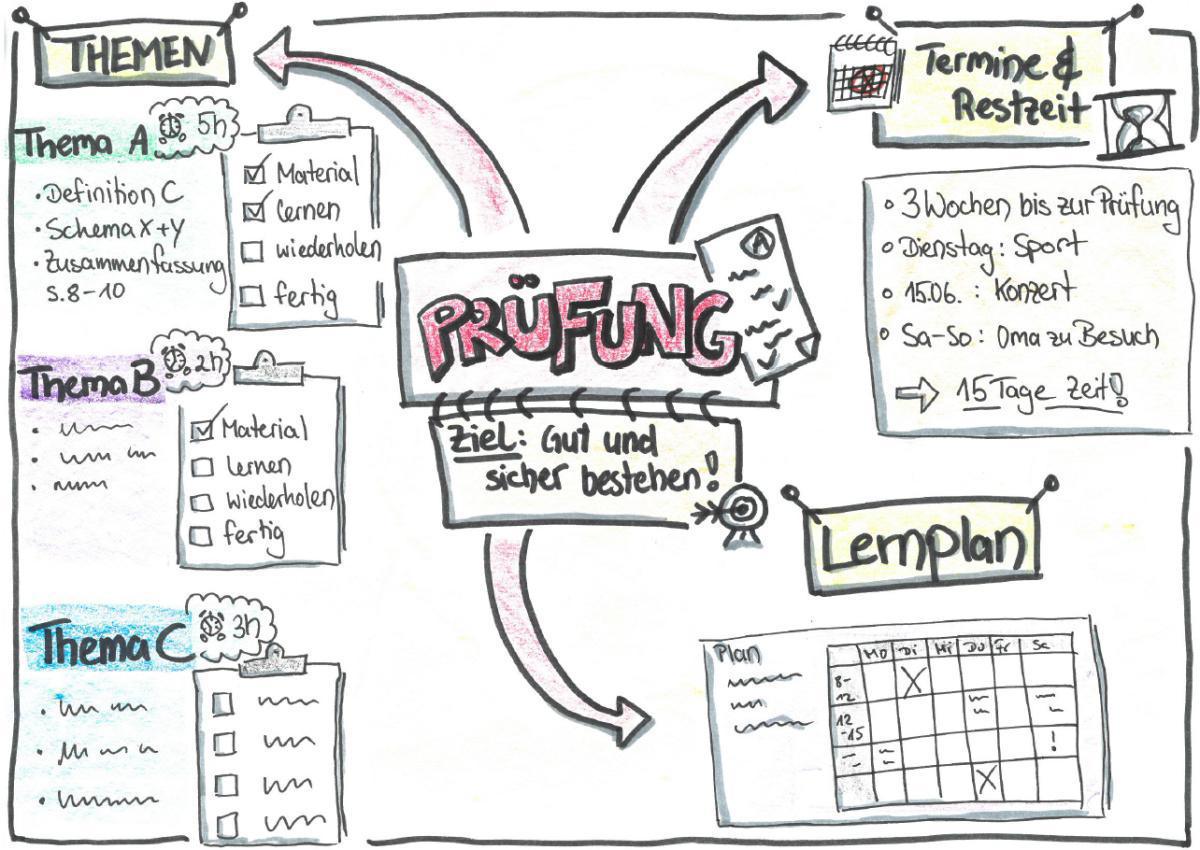 THEMEN
Thema A
5h
• Definition C
• Schema x+y
• Zusammenfassung
S.8-10
Material
lernen
wiederholen
fertig
Thema B
2h
Material
lernen
wiederholen
fertig
Thema C
3h
PRÜFUNG
A
Ziel: Gut und
sicher bestehen!
Termine &
Restzeit
3 Wochen bis zur Prüfung
Dienstag: Sport
15.06.: Konzert
Sa-So: Oma zu Besuch
⇒ 15 Tage Zeit!
Lernplan
Plan
Mo Di Mi Do Fr Sa
8-
12
12
-15
!